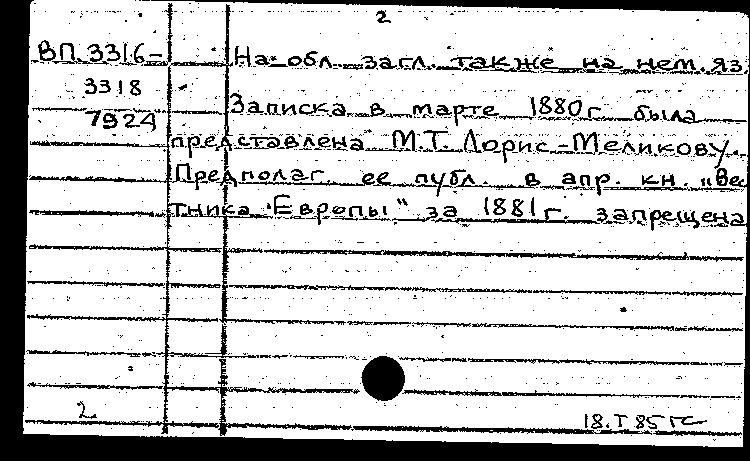 2
ВП.3316- На обл. загл. также на нем. яз.
3318
Записка в марте 1880 г. была
7924
представлена М.Т. Лорис-Меликову.
Предполаг. ее публ. в апр. кн. „Вес
тника Европы" за 1881 г. запрещена
2
18.I 85